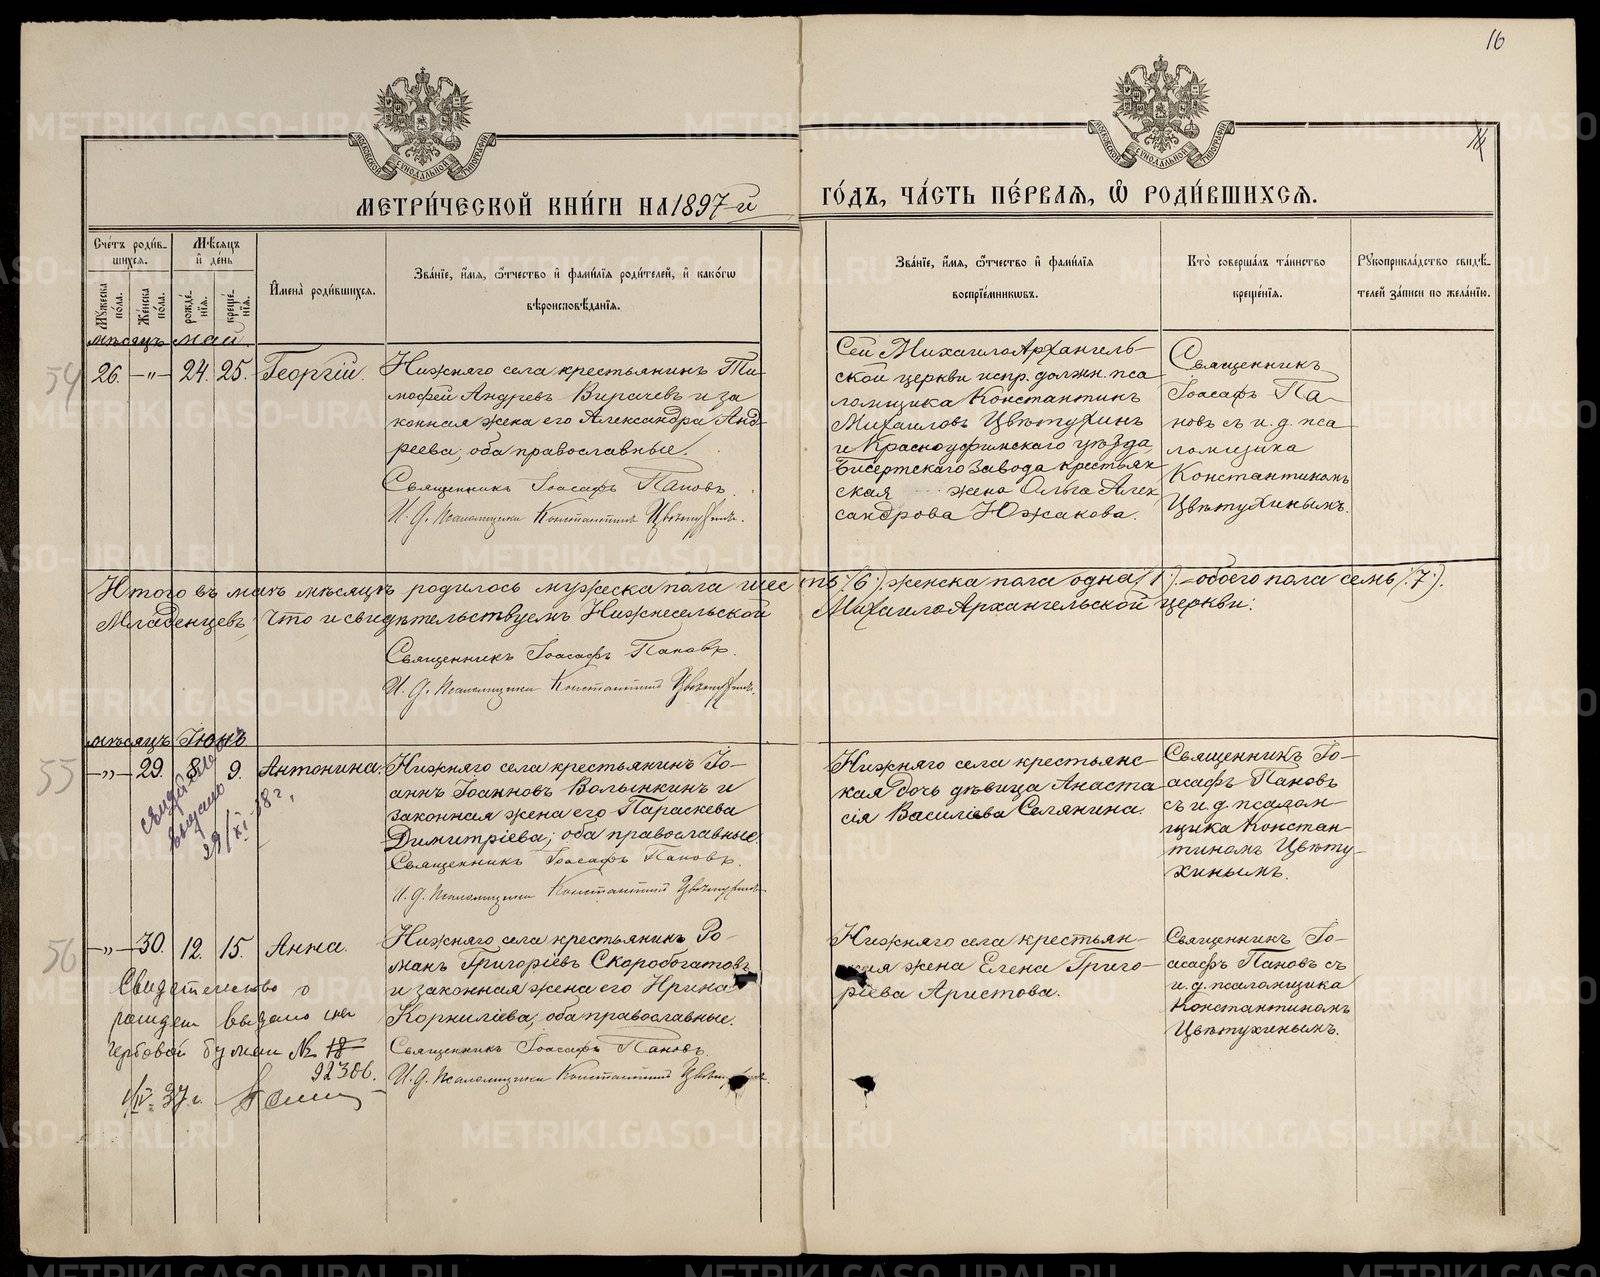 16
МЕТРИ́ЧЕСКОЙ КНИ́ГИ НА 1897-й ГО́ДЪ, ЧА́СТЬ ПЕ́РВАЯ, Ѽ РОДИ́ВШИХСЯ.
Сче́тъ роди́вшихся.
Мꙋ́жеска по́ла.
Же́нска по́ла.
Мѣ́сяцъ и҆ де́нь
рожде́нїя.
креще́нїя.
И҆мена̀ роди́вшихся.
Зва́нїе, и҆́мя, ѻ҆́тчество и҆ фами́лїя роди́телей, и҆ како́гѡ
вѣроисповѣ́данїя.
Зва́нїе, и҆́мя, ѻ҆́тчество и҆ фами́лїя
воспрїе́мникѡвъ.
Кто̀ соверша́лъ та́инство
креще́нїя.
Рꙋкоприкла́дство свидѣ́-
телей за́писи по жела́нїю.
мѣсяцъ май.
54
26. -"- 24. 25. Георгій.
Нижняго села крестьянинъ Ти-
мофей Андреевъ Вирачевъ и за
конная жена его Александра Анд-
реева, оба православные.
Священникъ Іоасафъ Пановъ.
И. д. псаломщика Константинъ Цвѣтухинъ.
Сей МихаилоАрхангель-
ской церкви испр. должн. пса
ломщика Константинъ
Михаиловъ Цвѣтухинъ
и Красноуфимскаго уѣзда,
Бисертскаго завода крестьян
ская жена Ольга Алек
сандрова Южакова.
Священникъ
Іоасафъ Па-
новъ съ и. д. пса
ломщика
Константиномъ
Цвѣтухинымъ.
Итого въ маѣ мѣсяцѣ родилось мужеска пола шесть (6) женска пола одна (1) - обоего пола семь (7).
Младенцевъ. Что и свидѣтельствуемъ Нижнесельской МихаилоАрхангельской церкви:
Священникъ Іоасафъ Пановъ.
И. д. псаломщика Константинъ Цвѣтухинъ.
мѣсяцъ Іюнь
55
-"- 29. 8. 9. Антонина.
выдано
29/XI-38 г.
Нижняго села крестьянинъ Іо-
аннъ Іоанновъ Волынкинъ и
законная жена его Параскева
Димитріева; оба православные.
Священникъ Іоасафъ Пановъ.
И. д. псаломщика Константинъ Цвѣтухинъ.
Нижняго села крестьянс-
кая дочь дѣвица Анаста
сія Василіева Селянина.
Священникъ Іо-
асафъ Пановъ
съ и. д. псалом-
щика Констан-
тиномъ Цвѣту-
хинымъ.
56
-"- 30. 12. 15. Анна.
Свидетельство о
рожден выдано на
гербовой бумаге № 18
92306.
1/IV-37 г.
Нижняго села крестьянинъ Ро-
манъ Григоріевъ Скоробогатовъ
и законная жена его Ирина
Корниліева, оба православные.
Священникъ Іоасафъ Пановъ.
И. д. псаломщика Константинъ
Нижняго села крестьян-
ская жена Елена Григо-
ріева Аристова.
Священникъ Іо-
асафъ Пановъ съ
и. д. псаломщика
Константиномъ
Цвѣтухинымъ.
METRIKI.GASO-URAL.RU